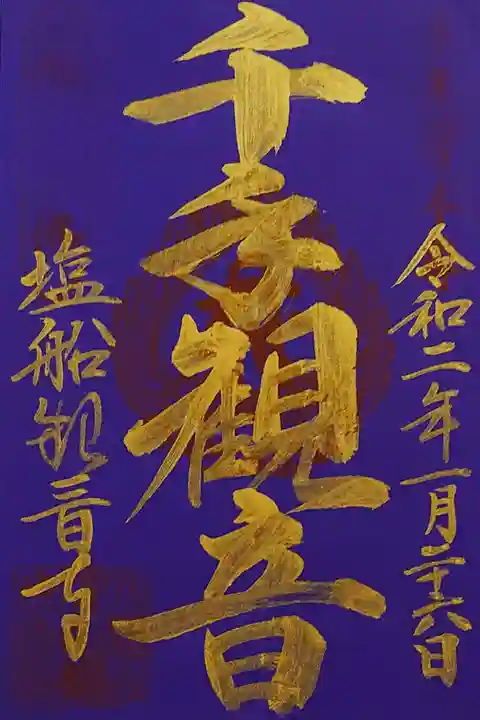 令和二年一月二十六日
千手観音
塩船観音寺